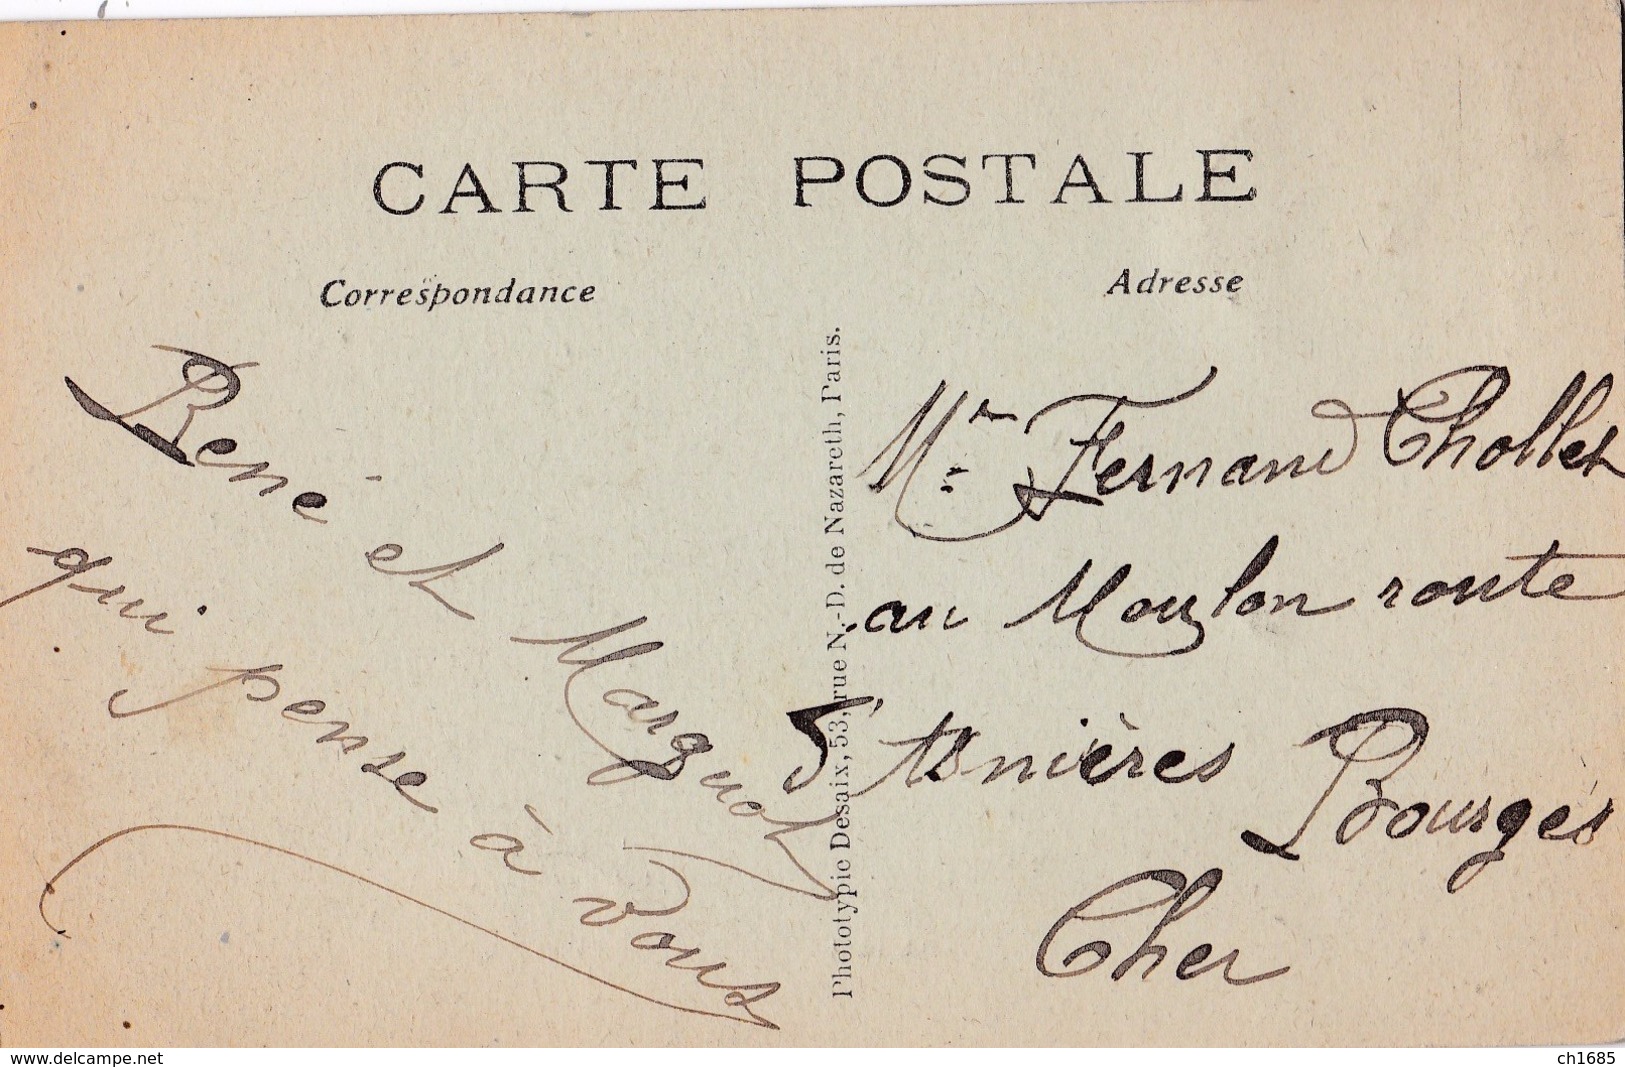 CARTE POSTALE
Correspondance
Adresse
René et Marguot
qui pense à vous
Phototypie Desaix, 53, rue N.-D. de Nazareth, Paris.
Mr. Fernand Chollet
au Moulon route
d'Asnières Bourges
Cher
www.delcampe.net
ch1685